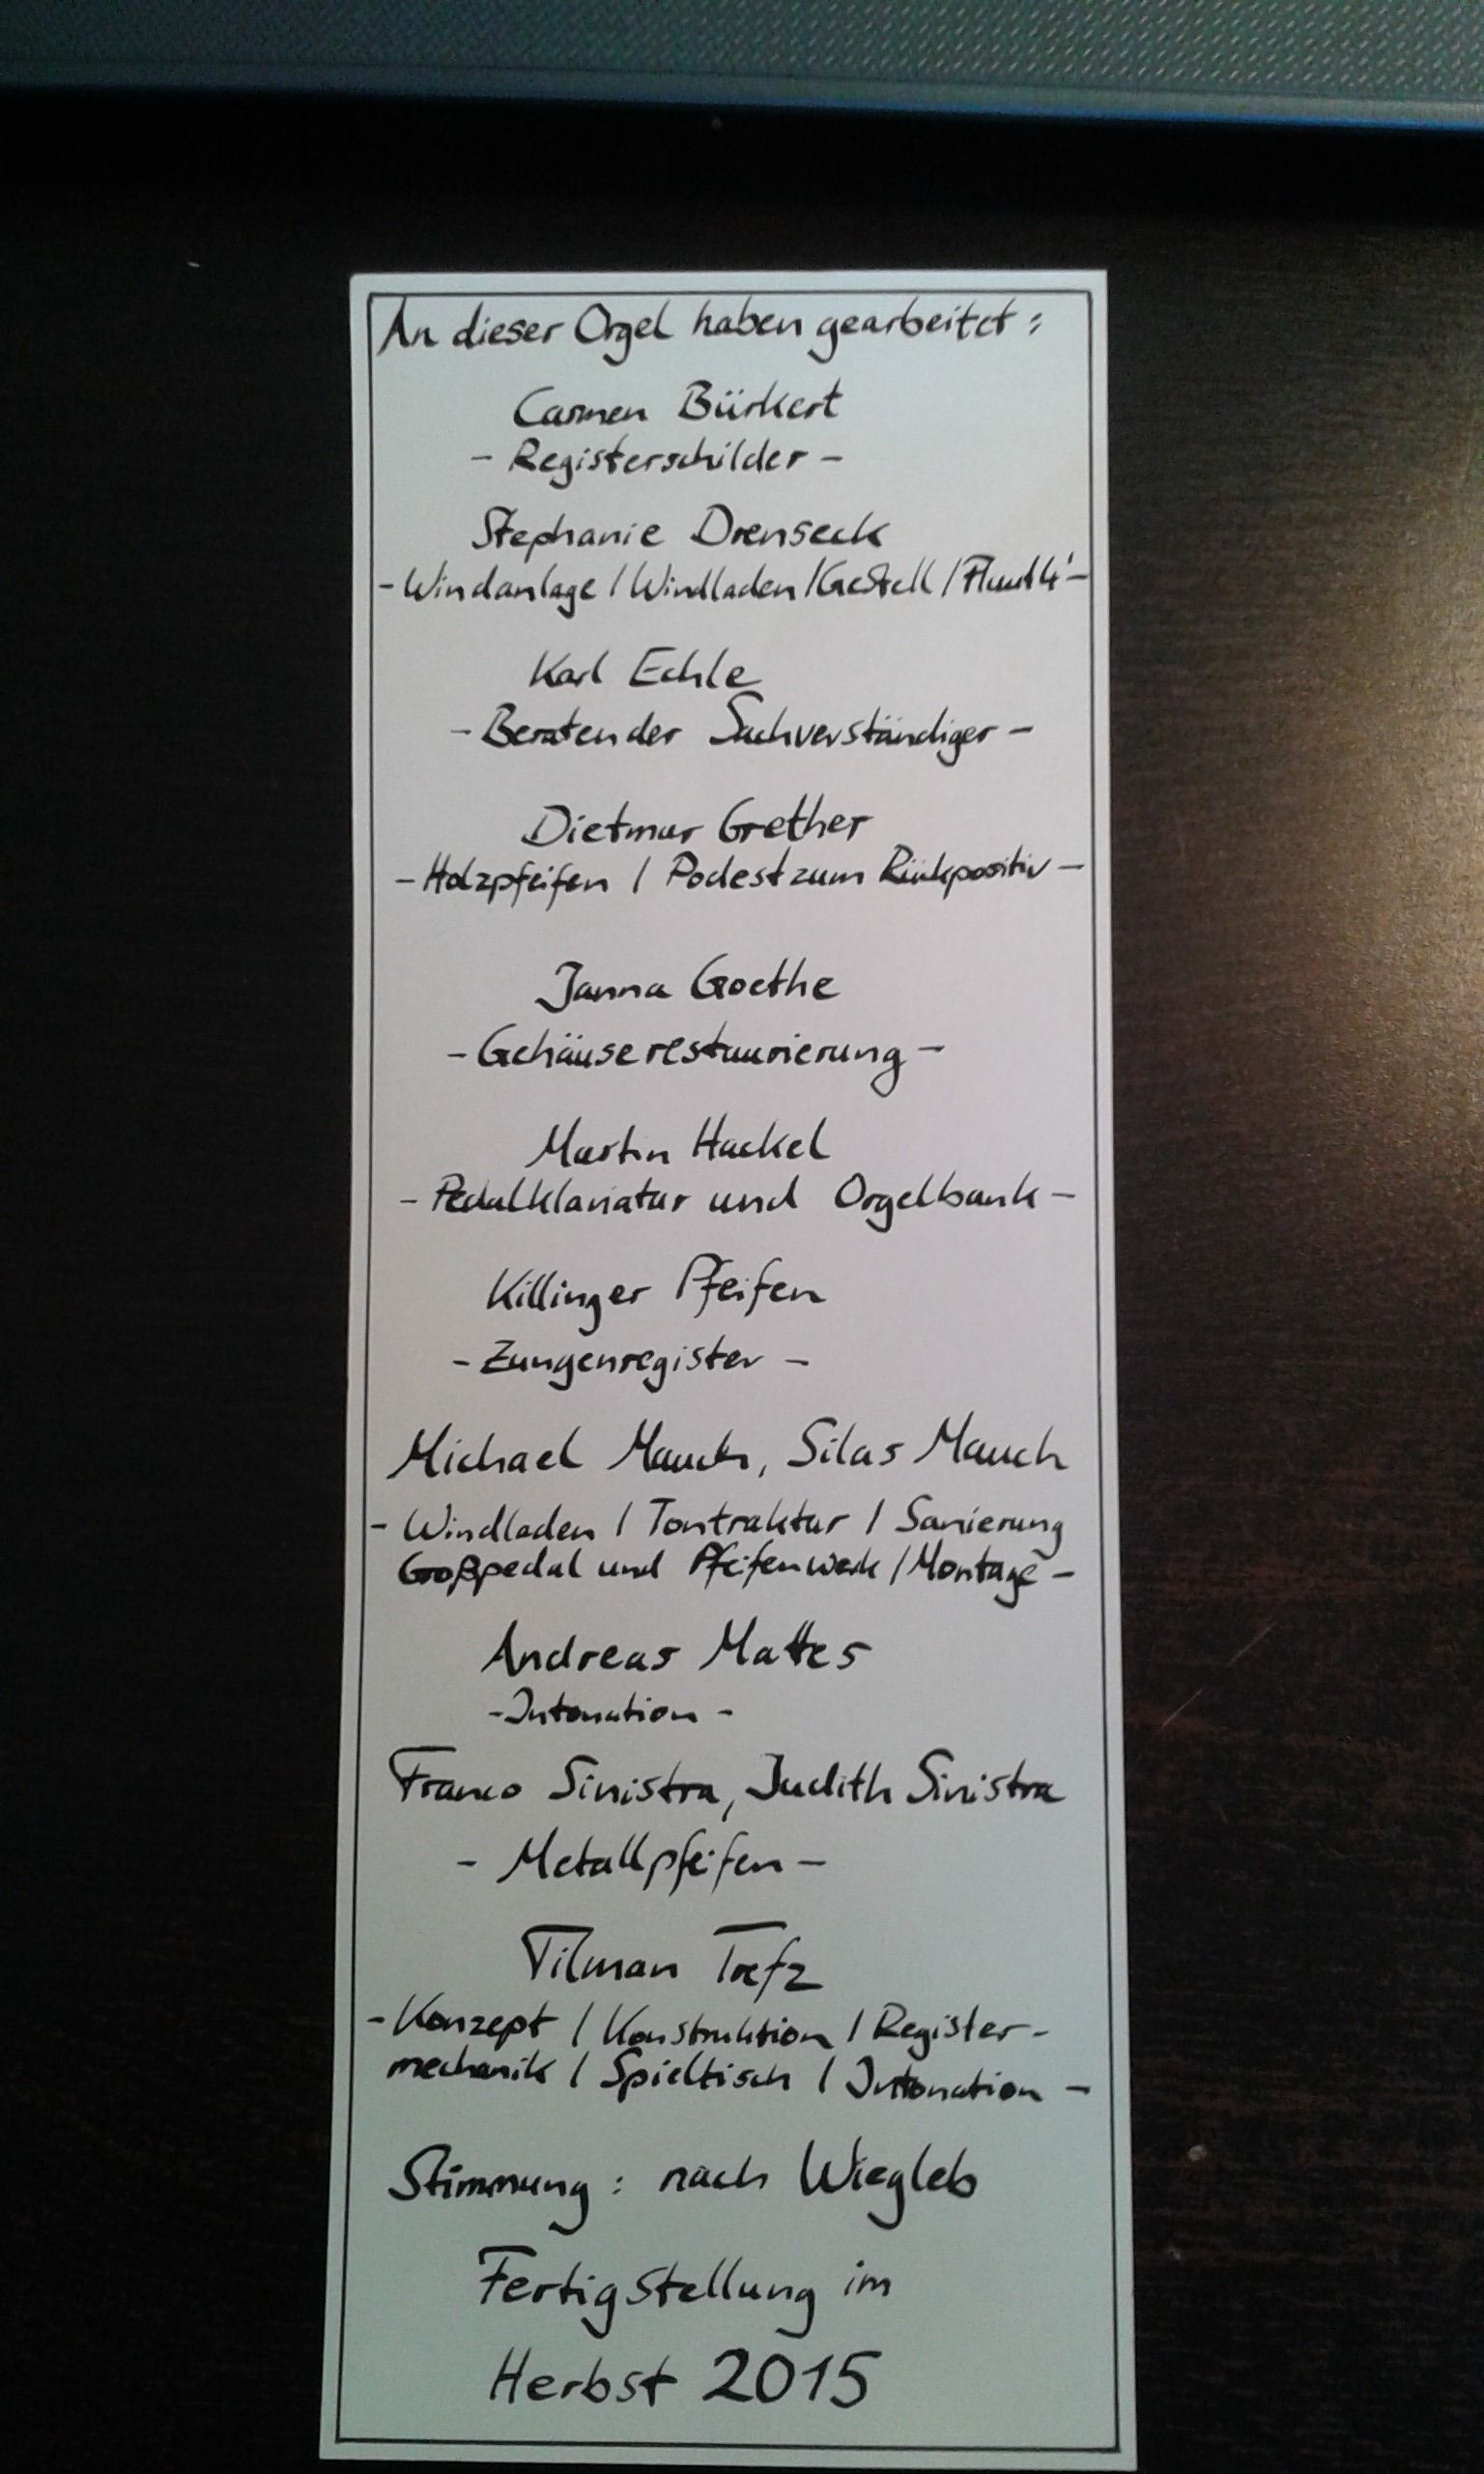 An dieser Orgel haben gearbeitet:
Carmen Bürkert
- Registerschilder -
Stephanie Drenseck
- Windanlage / Windladen / Gestell / Fluut 4' -
Karl Echle
- Beratender Sachverständiger -
Dietmar Grether
- Holzpfeifen / Podest zum Rückpositiv -
Janna Goethe
- Gehäuserestaurierung -
Martin Hackel
- Pedalklaviatur und Orgelbank -
Killinger Pfeifen
- Zungenregister -
Michael Mauch, Silas Mauch
- Windladen / Tontraktur / Sanierung
Großpedal und Pfeifenwerk / Montage -
Andreas Mattes
- Intonation -
Franco Sinistra, Judith Sinistra
- Metallpfeifen -
Tilman Trefz
- Konzept / Konstruktion / Register-
mechanik / Spieltisch / Intonation -
Stimmung: nach Wiegleb
Fertigstellung im
Herbst 2015